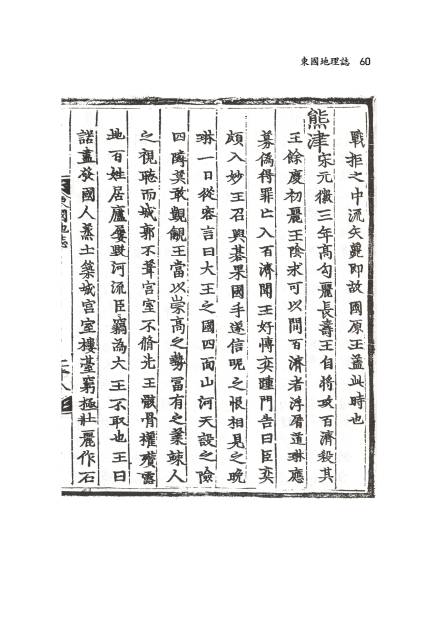 東國地理誌 60
戰拒之中流矢薨卽故國原王蓋此時也
熊津宋元徽三年高勾麗長壽王自將攻百濟殺其
王餘慶初麗王陰求可以間百濟者浮屠道琳應
募僞得罪亡入百濟聞王好博奕踵門告曰臣奕
頗入妙王召與碁果國手遂信昵之恨相見之晩
琳一日從容言曰大王之國四面山河天設之險
四隣莫敢覬覦王當以崇高之勢冨有之業竦人
之視聽而城郭不葺宮室不脩先王骸骨權殯露
地百姓居廬屢毁河流臣竊為大王不取也王曰
諾盡發國人烝土築城宮室樓䑓窮極壯麗作石
東國地理誌